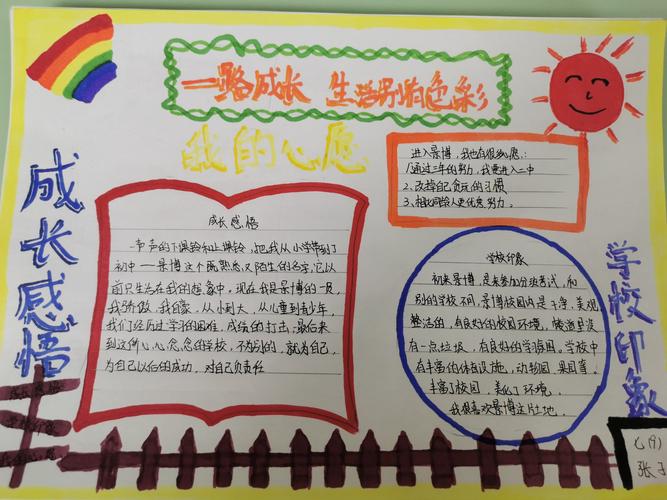 一路成长 生活别有色彩
我的心愿
成长感悟
成长感悟
一节声的下课铃和上课铃,把我从小学带到了
初中——景博这个既熟悉又陌生的名字,它以
前只生活在我的想象中,现在我是景博的一员,
我骄傲,我自豪,从小到大,从儿童到青少年,
我们经历过学习的困难,成绩的打击,最后来
到这所心心念念的学校,不为别的,就为自己,
为自己以后的成功,对自己负责任
进入景博,我也有很多心愿:
1.通过三年的努力,我要进入一中
2.改掉自己贪玩的习惯
3.相比同龄人更优秀,努力。
学校印象
初来景博,是来参加分班考试,和
别的学校不同,景博校园内是干净,美观
整洁的,有良好的校园环境,
有一点垃圾,有良好的学习氛围。学校中
有丰富的体育设施,动物园,果园等。
丰富了校园,美化了环境。
我很喜欢景博这片土地。
学校印象
七(9)
张